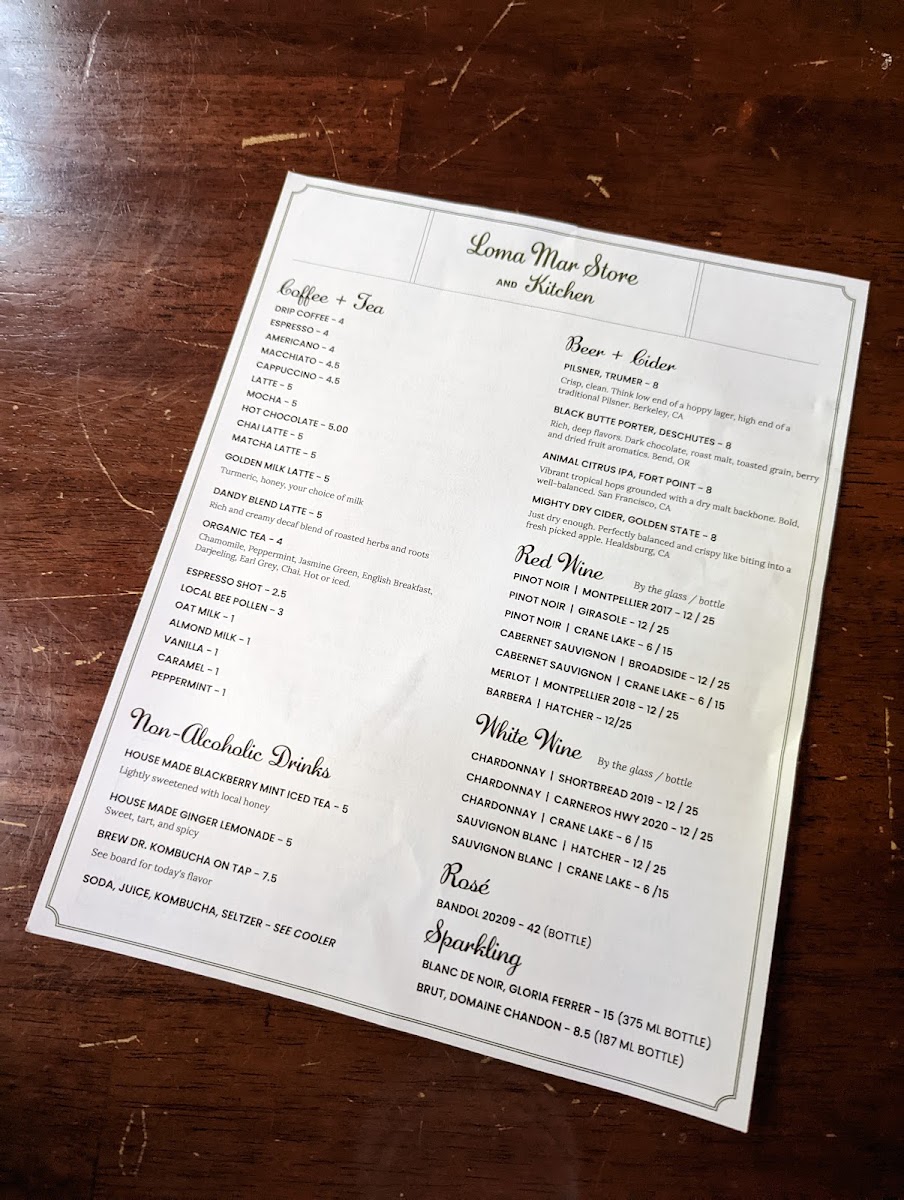 Loma Mar Store
AND Kitchen
Coffee + Tea
DRIP COFFEE – 4
ESPRESSO – 4
AMERICANO – 4
MACCHIATO – 4.5
CAPPUCCINO – 4.5
LATTE – 5
MOCHA – 5
HOT CHOCOLATE – 5.00
CHAI LATTE – 5
MATCHA LATTE – 5
GOLDEN MILK LATTE – 5
Turmeric, honey, your choice of milk
DANDY BLEND LATTE – 5
Rich and creamy decaf blend of roasted herbs and roots
ORGANIC TEA – 4
Chamomile, Peppermint, Jasmine Green, English Breakfast,
Darjeeling, Earl Grey, Chai. Hot or iced.
ESPRESSO SHOT – 2.5
LOCAL BEE POLLEN – 3
OAT MILK – 1
ALMOND MILK – 1
VANILLA – 1
CARAMEL – 1
PEPPERMINT – 1
Non-Alcoholic Drinks
HOUSE MADE BLACKBERRY MINT ICED TEA – 5
Lightly sweetened with local honey
HOUSE MADE GINGER LEMONADE – 5
Sweet, tart, and spicy
BREW DR. KOMBUCHA ON TAP – 7.5
See board for today's flavor
SODA, JUICE, KOMBUCHA, SELTZER – SEE COOLER
Beer + Cider
PILSNER, TRUMER – 8
Crisp, clean. Think low end of a hoppy lager, high end of a
traditional Pilsner. Berkeley, CA
BLACK BUTTE PORTER, DESCHUTES – 8
Rich, deep flavors. Dark chocolate, roast malt, toasted grain, berry
and dried fruit aromatics. Bend, OR
ANIMAL CITRUS IPA, FORT POINT – 8
Vibrant tropical hops grounded with a dry malt backbone. Bold,
well-balanced. San Francisco, CA
MIGHTY DRY CIDER, GOLDEN STATE – 8
Just dry enough. Perfectly balanced and crispy like biting into a
fresh picked apple. Healdsburg, CA
Red Wine By the glass / bottle
PINOT NOIR | MONTPELLIER 2017 – 12 / 25
PINOT NOIR | GIRASOLE – 12 / 25
PINOT NOIR | CRANE LAKE – 6 / 15
CABERNET SAUVIGNON | BROADSIDE – 12 / 25
CABERNET SAUVIGNON | CRANE LAKE – 6 / 15
MERLOT | MONTPELLIER 2018 – 12 / 25
BARBERA | HATCHER – 12/25
White Wine By the glass / bottle
CHARDONNAY | SHORTBREAD 2019 – 12 / 25
CHARDONNAY | CARNEROS HWY 2020 – 12 / 25
CHARDONNAY | CRANE LAKE – 6 / 15
SAUVIGNON BLANC | HATCHER – 12 / 25
SAUVIGNON BLANC | CRANE LAKE – 6 /15
Rosé
BANDOL 20209 – 42 (BOTTLE)
Sparkling
BLANC DE NOIR, GLORIA FERRER – 15 (375 ML BOTTLE)
BRUT, DOMAINE CHANDON – 8.5 (187 ML BOTTLE)